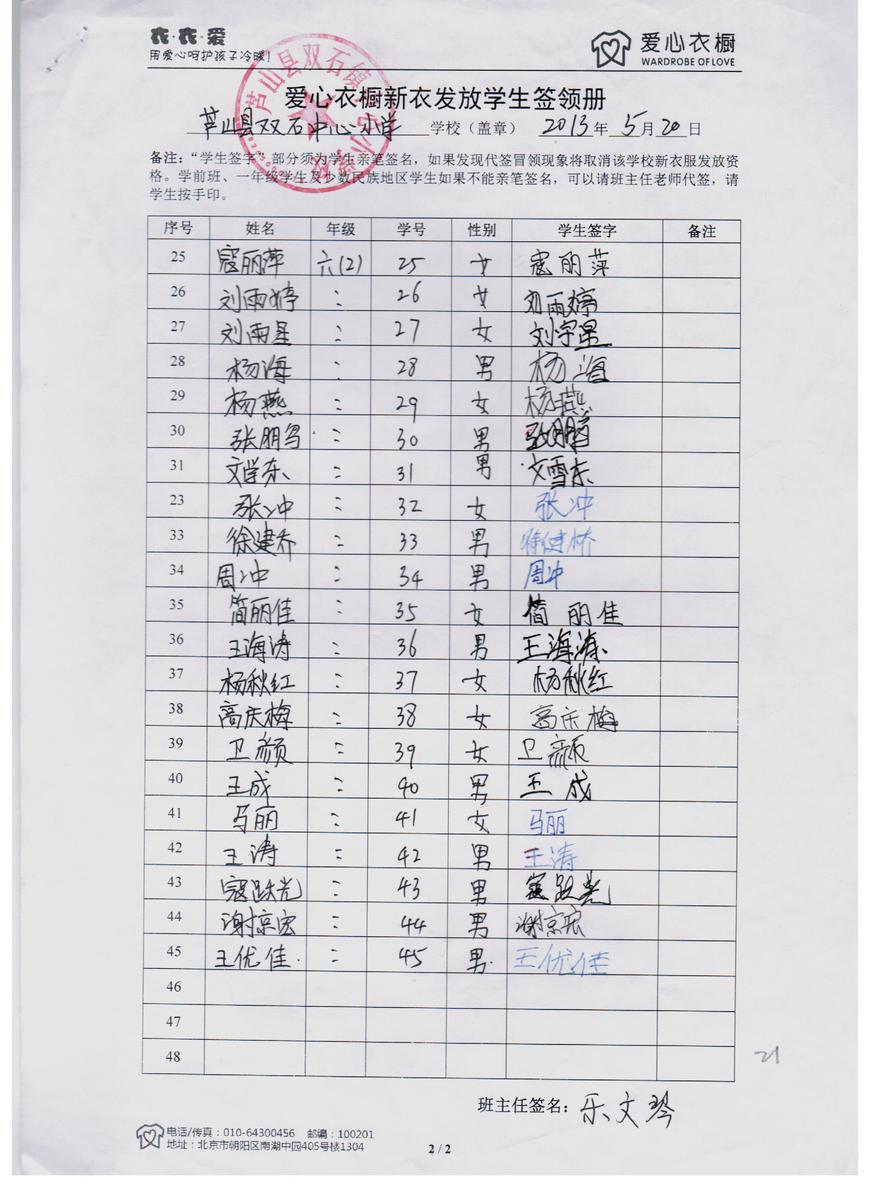 衣·衣·爱
用爱心呵护孩子冷暖!
爱心衣橱
WARDROBE OF LOVE
爱心衣橱新衣发放学生签领册
芦山县双石中心小学 学校（盖章） 2013年 5月 20日
备注：“学生签字”部分须为学生亲笔签名，如果发现代签冒领现象将取消该学校新衣服发放资
格。学前班、一年级学生及少数民族地区学生如果不能亲笔签名，可以请班主任老师代签，请
学生按手印。
序号 姓名 年级 学号 性别 学生签字 备注
25 寇丽萍 六(2) 25 女 寇丽萍
26 刘雨婷 〃 26 女 刘雨婷
27 刘雨星 〃 27 女 刘宇星
28 杨海 〃 28 男 杨海
29 杨燕 〃 29 女 杨燕
30 张朋 〃 30 男
31 文学东 〃 31 男 文雪东
23 张冲 〃 32 女 张冲
33 徐建乔 〃 33 男 徐健桥
34 周冲 〃 34 男 周冲
35 简丽佳 〃 35 女 简丽佳
36 王海涛 〃 36 男 王海涛
37 杨秋红 〃 37 女 杨秋红
38 高庆梅 〃 38 女 高庆梅
39 卫颜 〃 39 女 卫颜
40 王成 〃 40 男 王成
41 马丽 〃 41 女 马丽
42 王涛 〃 42 男 王涛
43 寇跃光 〃 43 男 寇跃光
44 谢京宏 〃 44 男 谢京宏
45 王优佳 〃 45 男 王优佳
46
47
48
21
班主任签名：乐文琴
电话/传真：010-64300456 邮编：100201
地址：北京市朝阳区南湖中园405号楼1304
2 / 2